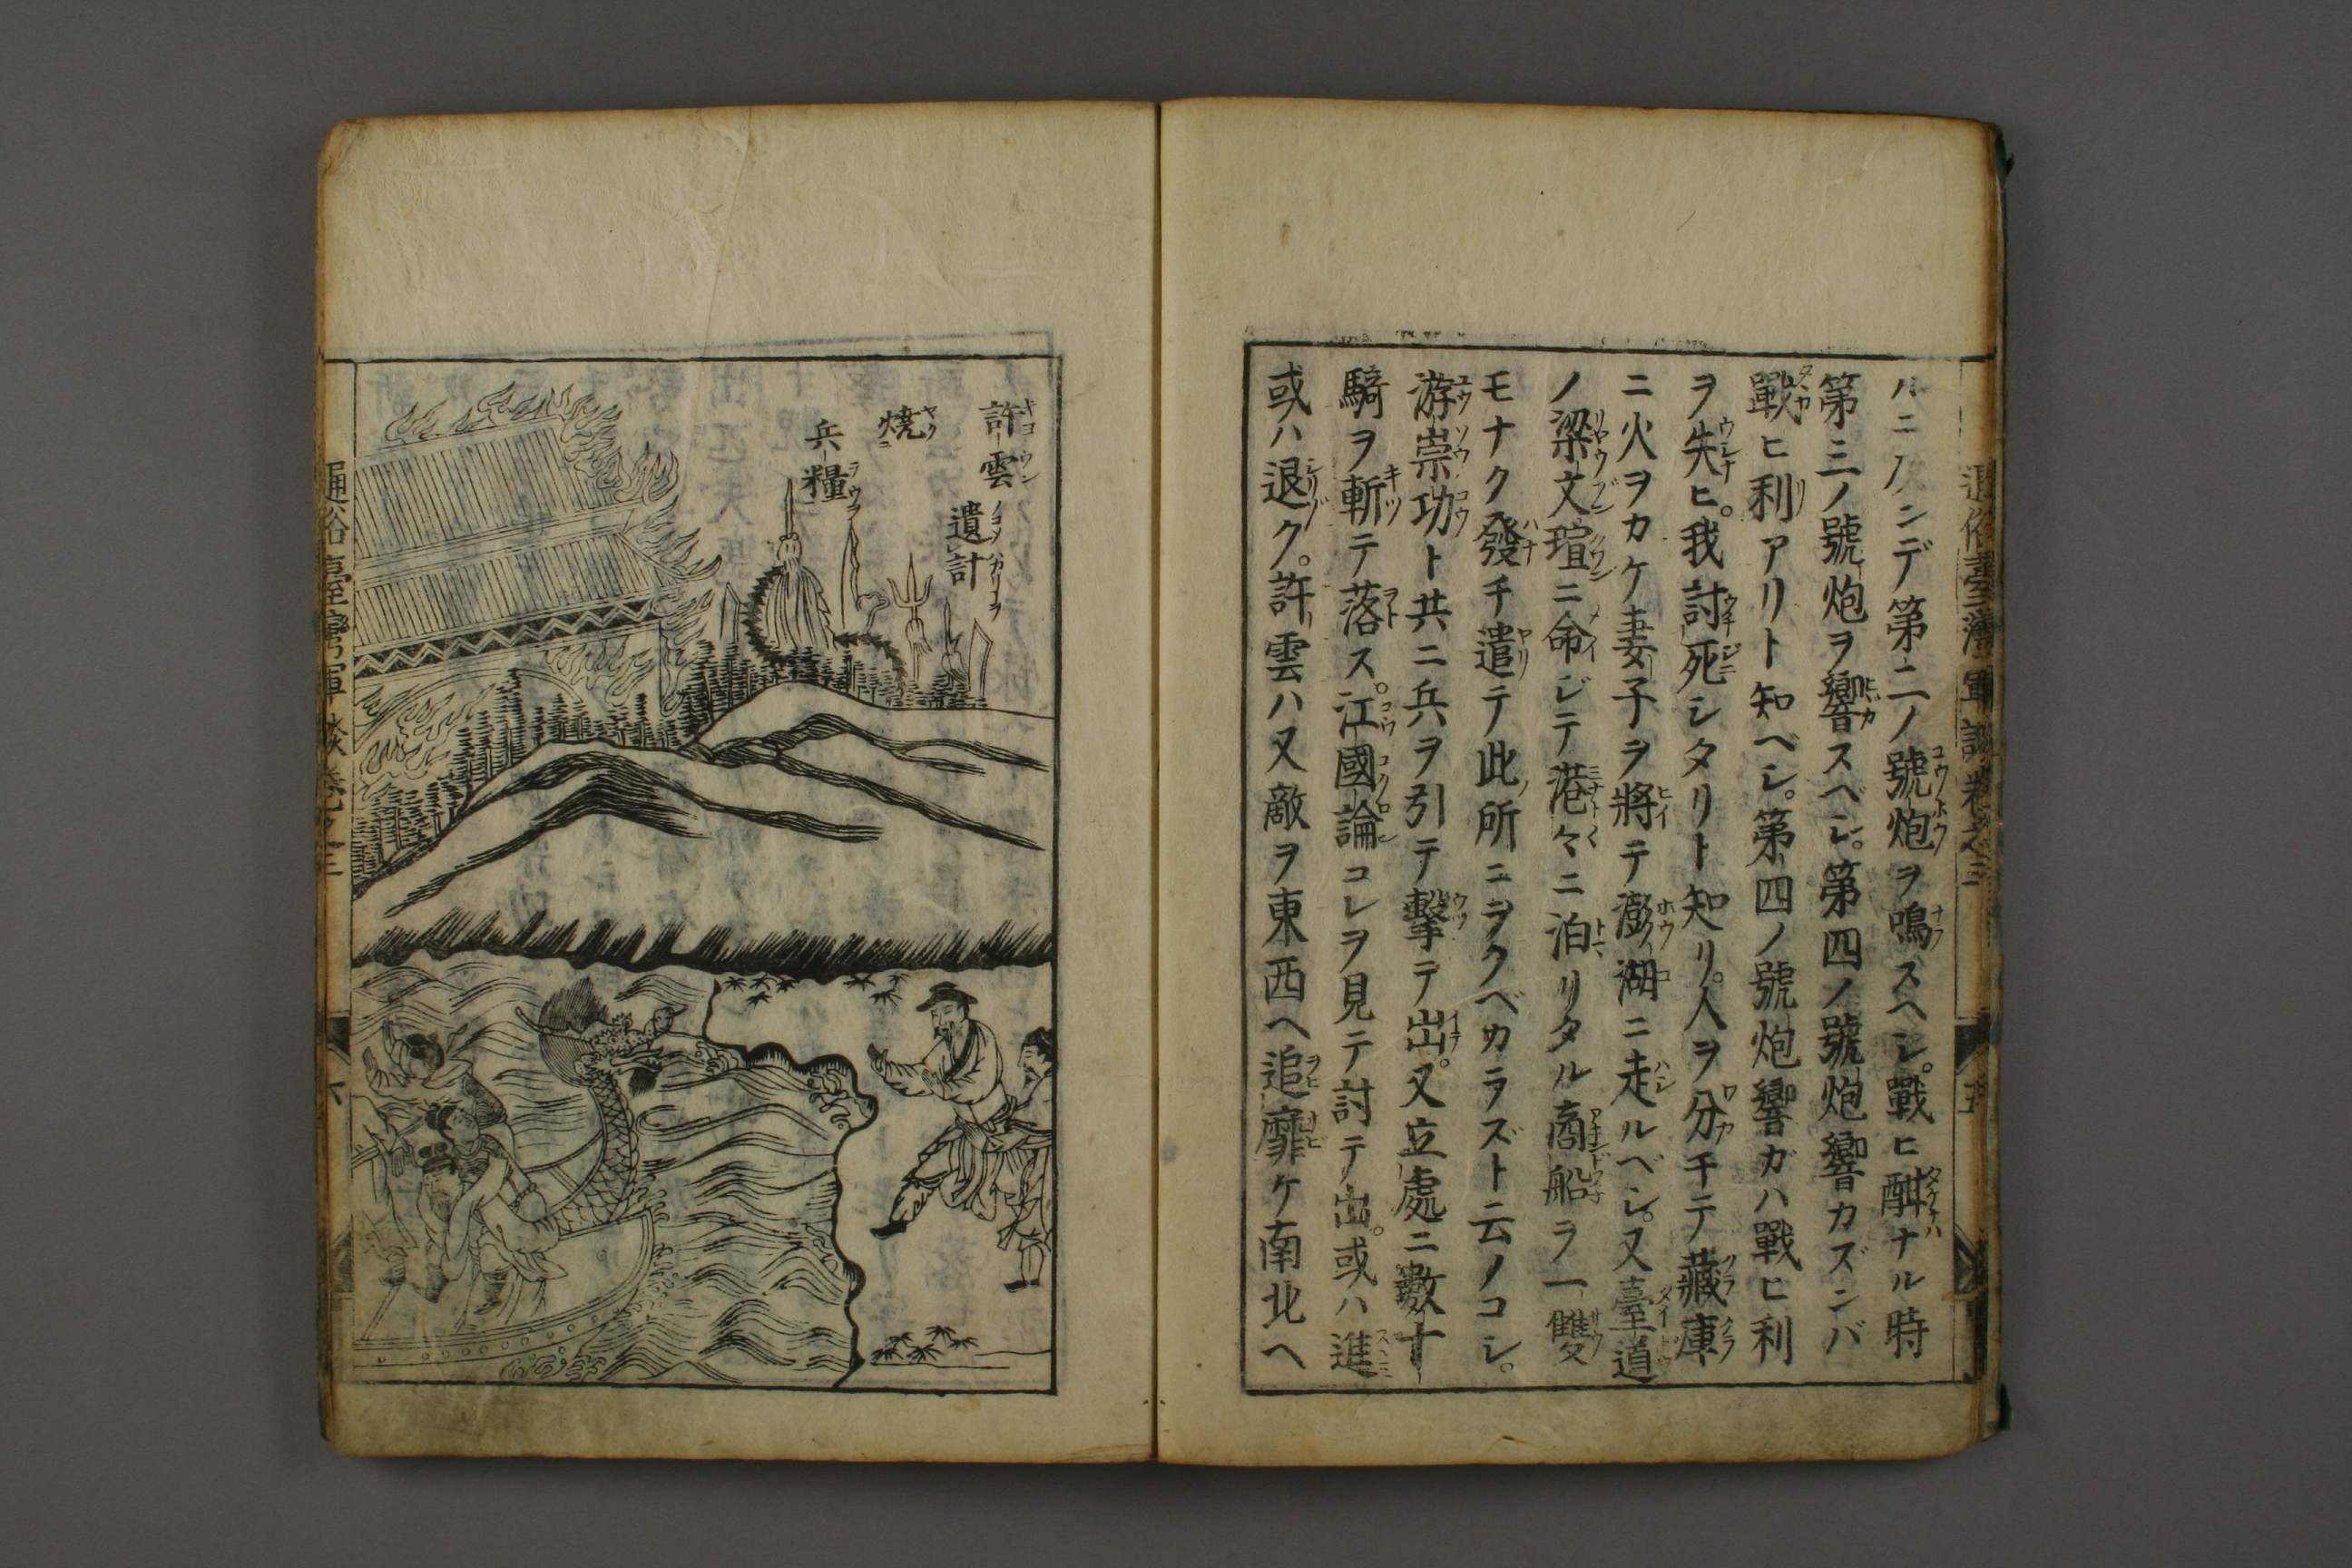 通俗臺灣軍談卷之三
五
ルニノンデ第二ノ號炮ヲ鳴スヘシ。戰ヒ酣ナル時
第三ノ號炮ヲ響スベシ。第四ノ號炮響カズンバ
戰ヒ利アリト知ベシ。第四ノ號炮響ガハ戰ヒ利
ヲ失ヒ。我討死シタリト知リ。人ヲ分チテ藏庫
ニ火ヲカケ妻子ヲ將テ澎湖ニ走ルベシ。又臺道
ノ梁文瑄ニ命ジテ港々ニ泊リタル商船ヲ一雙
モナク發チ遣テ此所ニヲクベカラズト云ノコシ。
游崇功ト共ニ兵ヲ引テ擊テ出。又立處ニ數十
騎ヲ斬テ落ス。江國論コレヲ見テ討テ出。或ハ進
或ハ退ク。許雲ハ又敵ヲ東西ヘ追靡ケ南北ヘ
許雲
遺計
燒
兵糧
通俗臺灣軍談卷之三
六